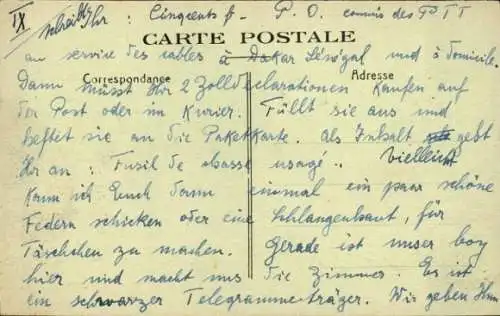 IX
schreibt Ihr : Cinqcents f - P. O. commis des PTT
CARTE POSTALE
au service des cables à Dakar Sénégal und à domicile.
Correspondance
Adresse
Dann müsst Ihr 2 Zolldeclarationen kaufen auf
der Post oder im Kurier. Füllt sie aus und
heftet sie an die Paketkarte. Als Inhalt gebt
Ihr an : Fusil de chasse usagé. Vielleicht
kann ich Euch dann einmal ein paar schöne
Federn schicken oder eine Schlangenhaut, für
Täschchen zu machen. Gerade ist unser boy
hier und macht uns die Zimmer. Es ist
ein schwarzer Telegrammeträger. Wir geben ihm